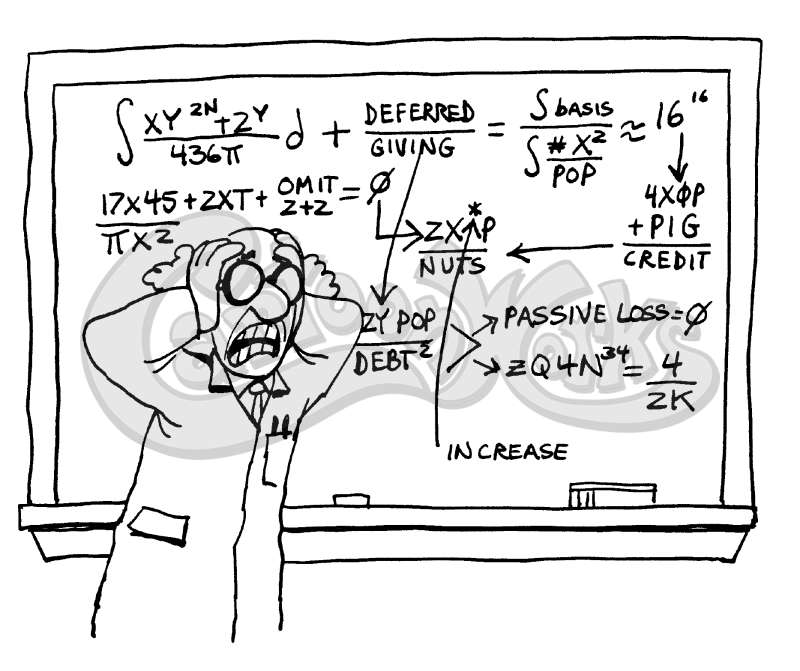 ∫ XY²ᴺ+Zʸ / 436π d + DEFERRED / GIVING = ∫BASIS / ∫ #X² / POP ≈ 16¹⁶
17X45 / πX² + 2XT + OMIT / Z+Z = ∅
4XφP
+PIG
CREDIT
ZX^P *
NUTS
ZY POP
DEBT²
PASSIVE LOSS=∅
ZQ4N³⁴ = 4 / ZK
INCREASE
CartoonWorks